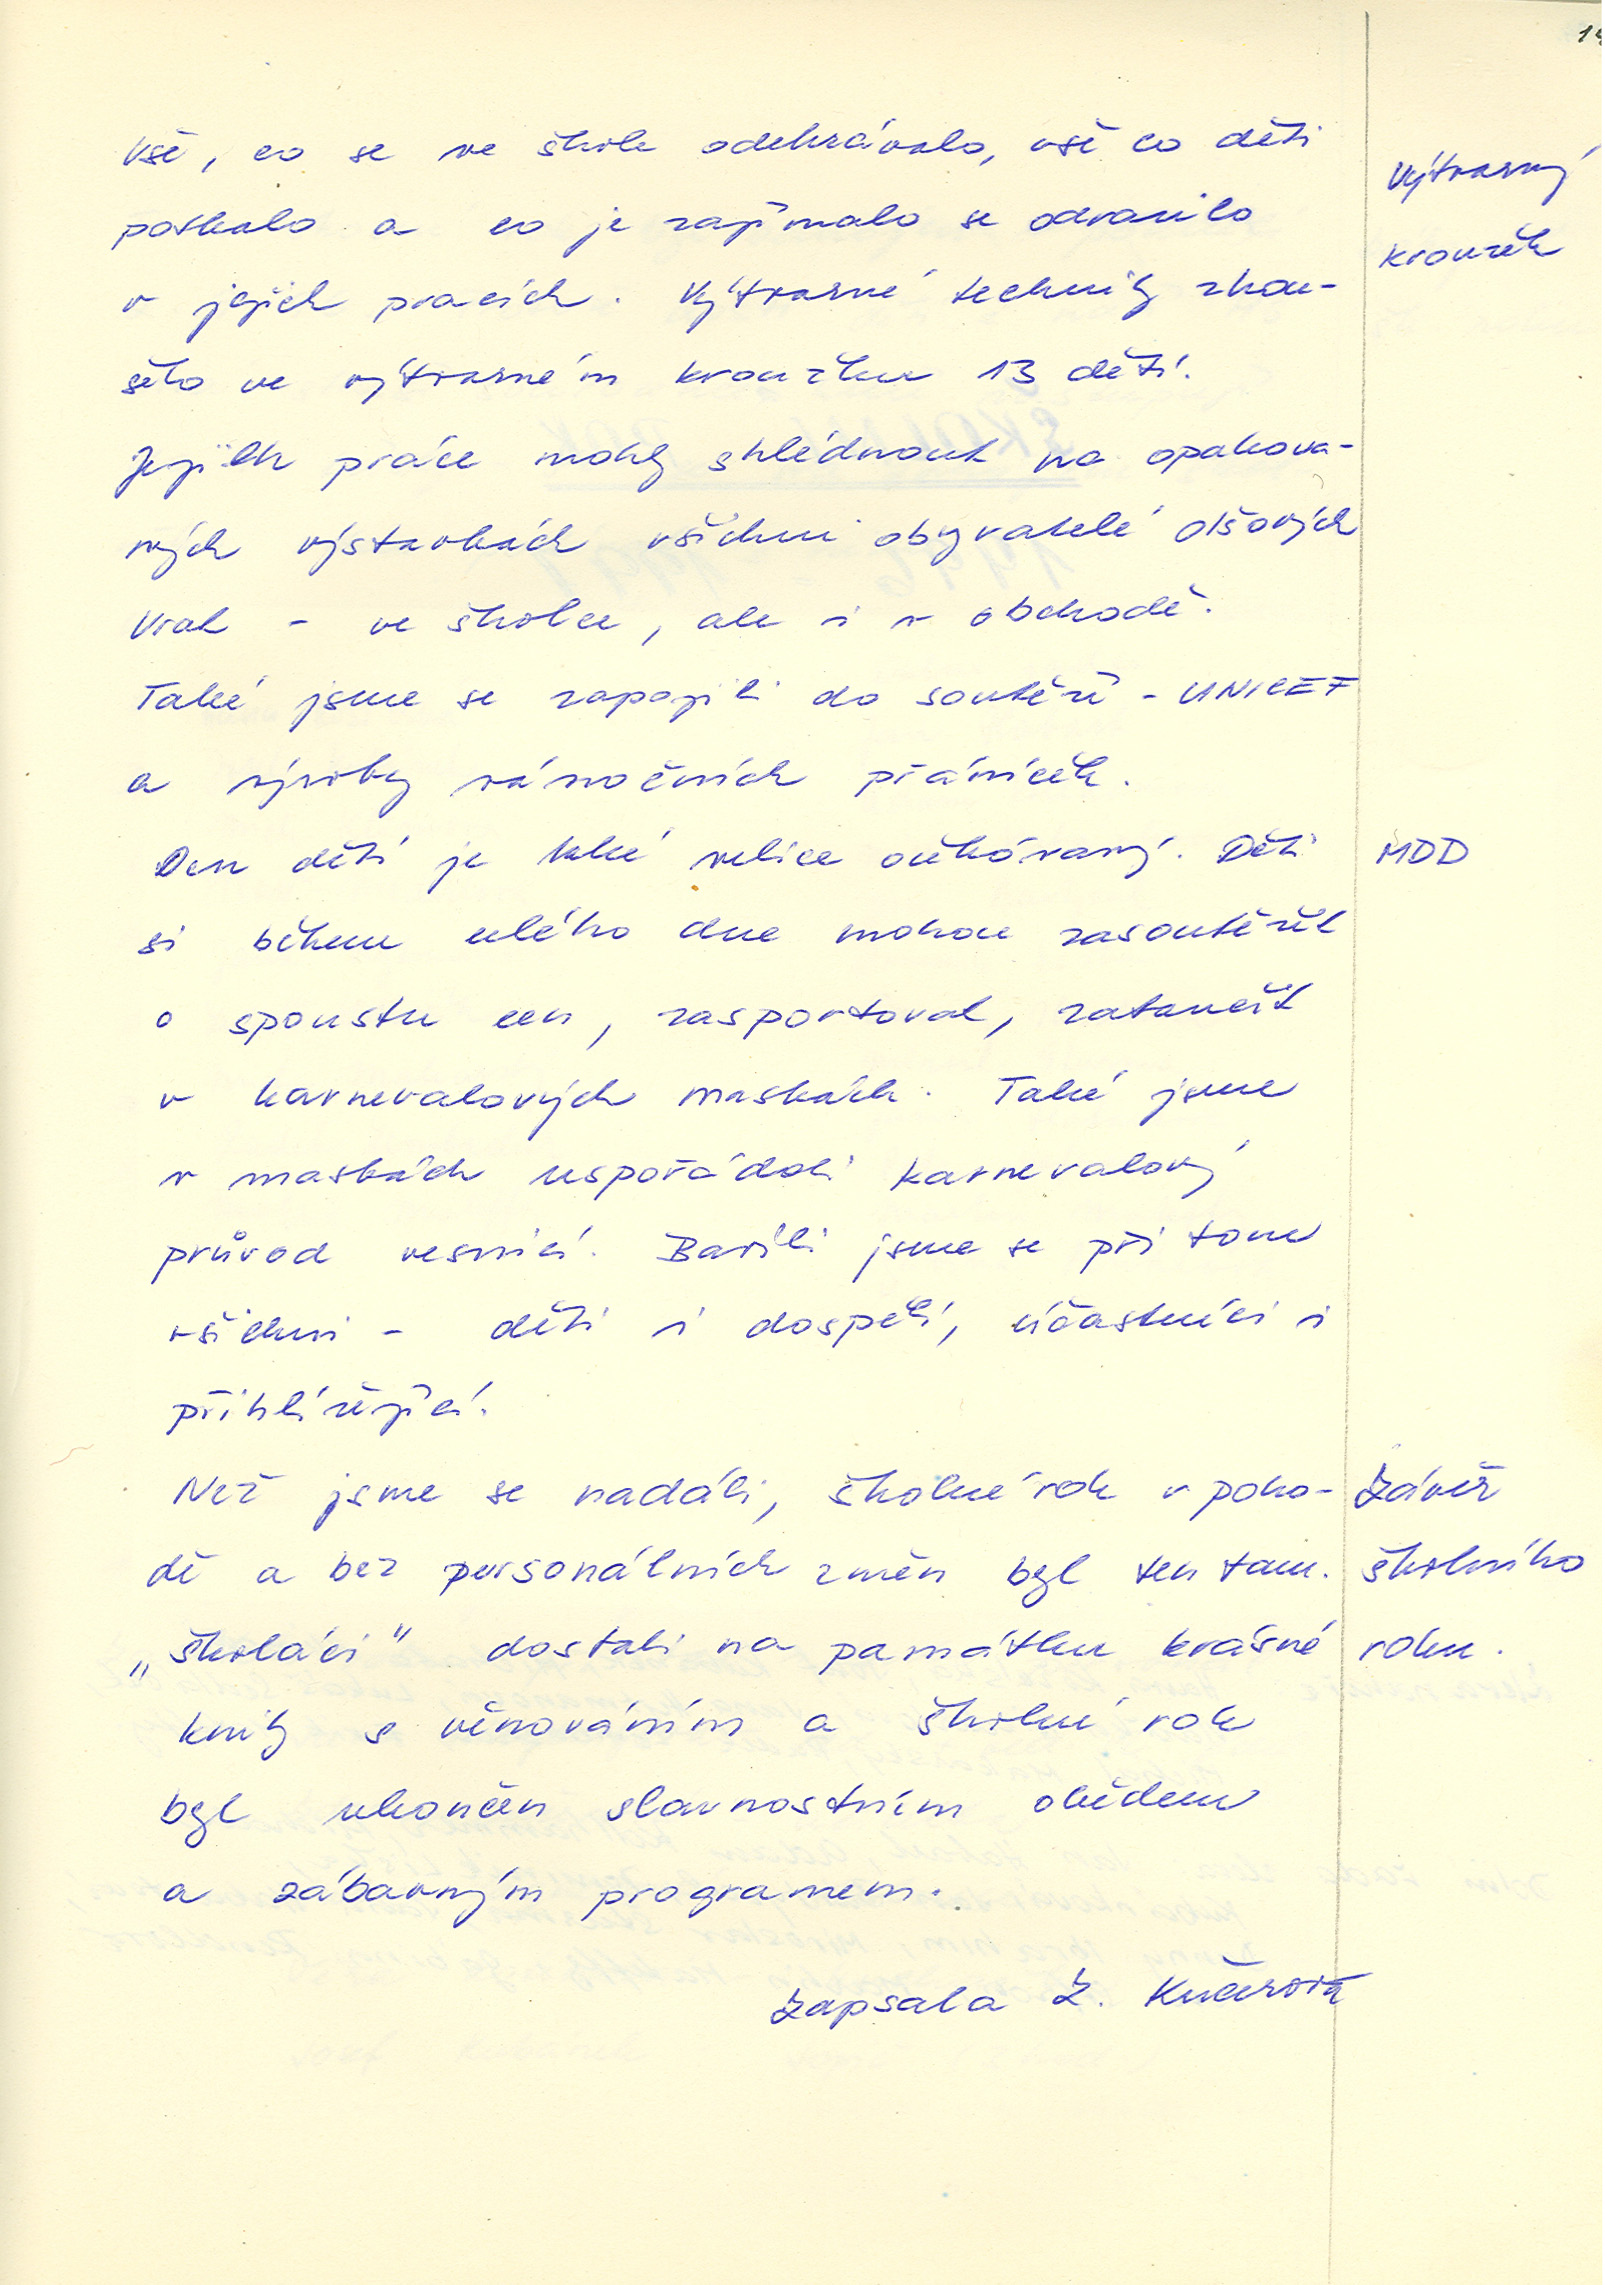 Vše, co se ve škole odehrávalo, vše co děti
potkalo a co je zajímalo se odrazilo
v jejich pracích. Výtvarné techniky zkou-
šelo ve výtvarném kroužku 13 dětí.
Jejich práce mohly shlédnout na opakova-
ných výstavkách všichni obyvatelé Olšových
Vrat - ve školce, ale i v obchodě.
Také jsme se zapojili do soutěží - UNICEF
a výroby vánočních přáníček.
Den dětí je také velice očekávaný. Děti
si během celého dne mohou zasoutěžit
o spoustu cen, zasportovat, zatančit
v karnevalových maskách. Také jsme
v maskách uspořádali karnevalový
průvod vesnicí. Bavili jsme se při tom
všichni - děti i dospělí, účastníci i
přihlížející.
Než jsme se nadáli, školní rok v poho-
dě a bez personálních změn byl ten tam.
„Školáci" dostali na památku krásné
knihy s věnováním a školní rok
byl ukončen slavnostním obědem
a zábavným programem.
Zapsala Z. Kučerová
Výtvarný
kroužek
MDD
Závěr
školního
roku.